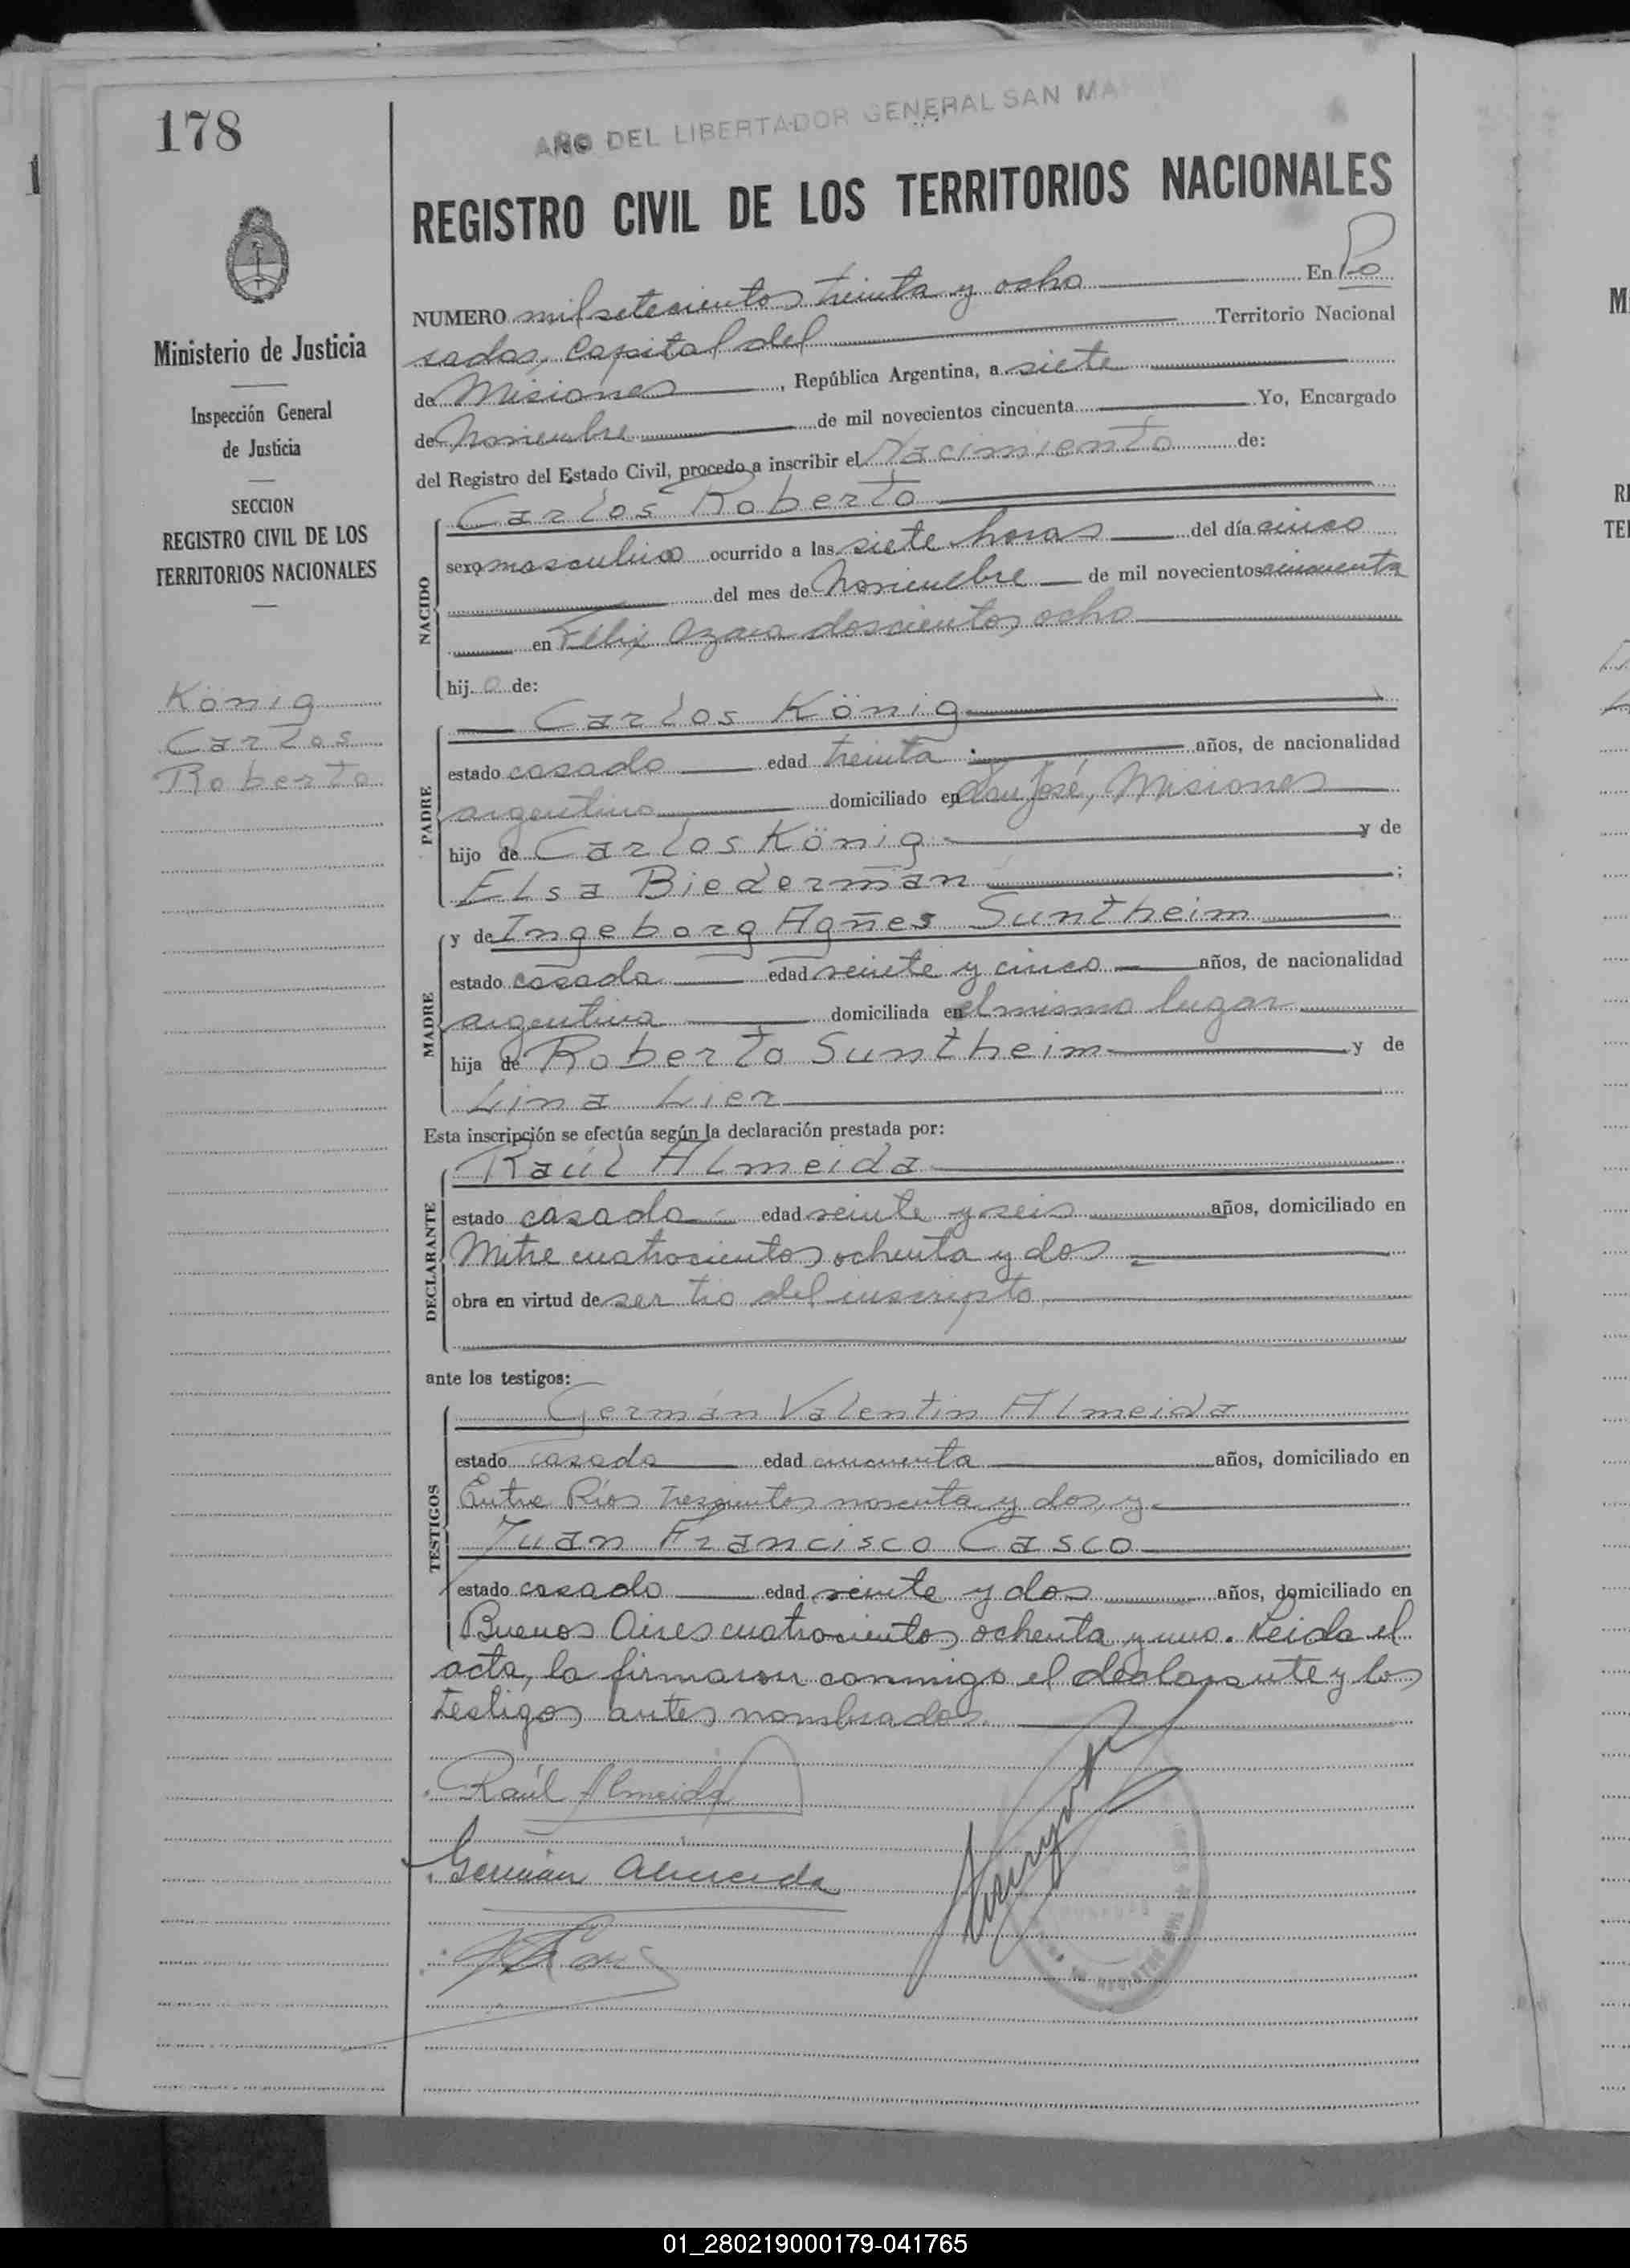 178
AÑO DEL LIBERTADOR GENERAL SAN MA
REGISTRO CIVIL DE LOS TERRITORIOS NACIONALES
Ministerio de Justicia
Inspección General
de Justicia
SECCION
REGISTRO CIVIL DE LOS
TERRITORIOS NACIONALES
König
Carlos
Roberto
NUMERO mil setecientos treinta y ocho En Po
sadas, Capital del Territorio Nacional
de Misiones, República Argentina, a siete
de Noviembre de mil novecientos cincuenta Yo, Encargado
del Registro del Estado Civil, procedo a inscribir el Nacimiento de:
NACIDO
Carlos Roberto
sexo masculino ocurrido a las siete horas del día cinco
del mes de Noviembre de mil novecientos cincuenta
en Félix Azara doscientos ocho
hijo de:
PADRE
Carlos König
estado casado edad treinta años, de nacionalidad
argentino domiciliado en San José, Misiones
hijo de Carlos König y de
Elsa Biederman;
MADRE
y de Ingeborg Agñes Suntheim
estado casada edad veinte y cinco años, de nacionalidad
argentina domiciliada en el mismo lugar
hija de Roberto Suntheim y de
Lina Lier
Esta inscripción se efectúa según la declaración prestada por:
DECLARANTE
Raúl Almeida
estado casado edad veinte y seis años, domiciliado en
Mitre cuatrocientos ochenta y dos
obra en virtud de ser tio del inscripto
ante los testigos:
TESTIGOS
Germán Valentin Almeida
estado casado edad cincuenta años, domiciliado en
Entre Ríos trescientos noventa y dos, y
Juan Francisco Casco
estado casado edad veinte y dos años, domiciliado en
Buenos Aires cuatrocientos ochenta y uno. Leida el
acta, la firmaron conmigo el declarante y los
testigos antes nombrados.
Raúl Almeida
Germán Almeida
01_280219000179-041765